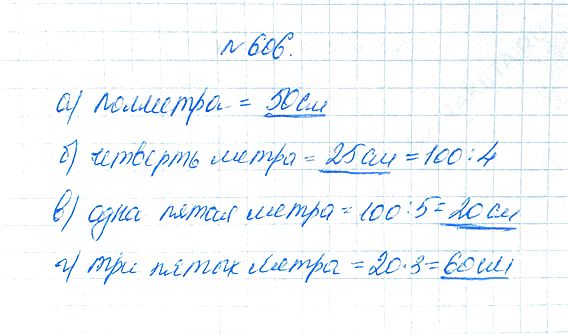 №606.
а) полметра = 50см
б) четверть метра = 25см = 100:4
в) одна пятая метра = 100:5 = 20см
г) три пятых метра = 20·3 = 60см